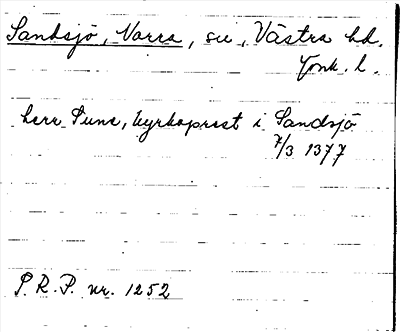 Sandsjö, Norra, sn, Västra hd.
Jönk. l.
herr Sune, kyrkoprest i Sandsjö
7/3 1377
P. R. P. nr. 1252